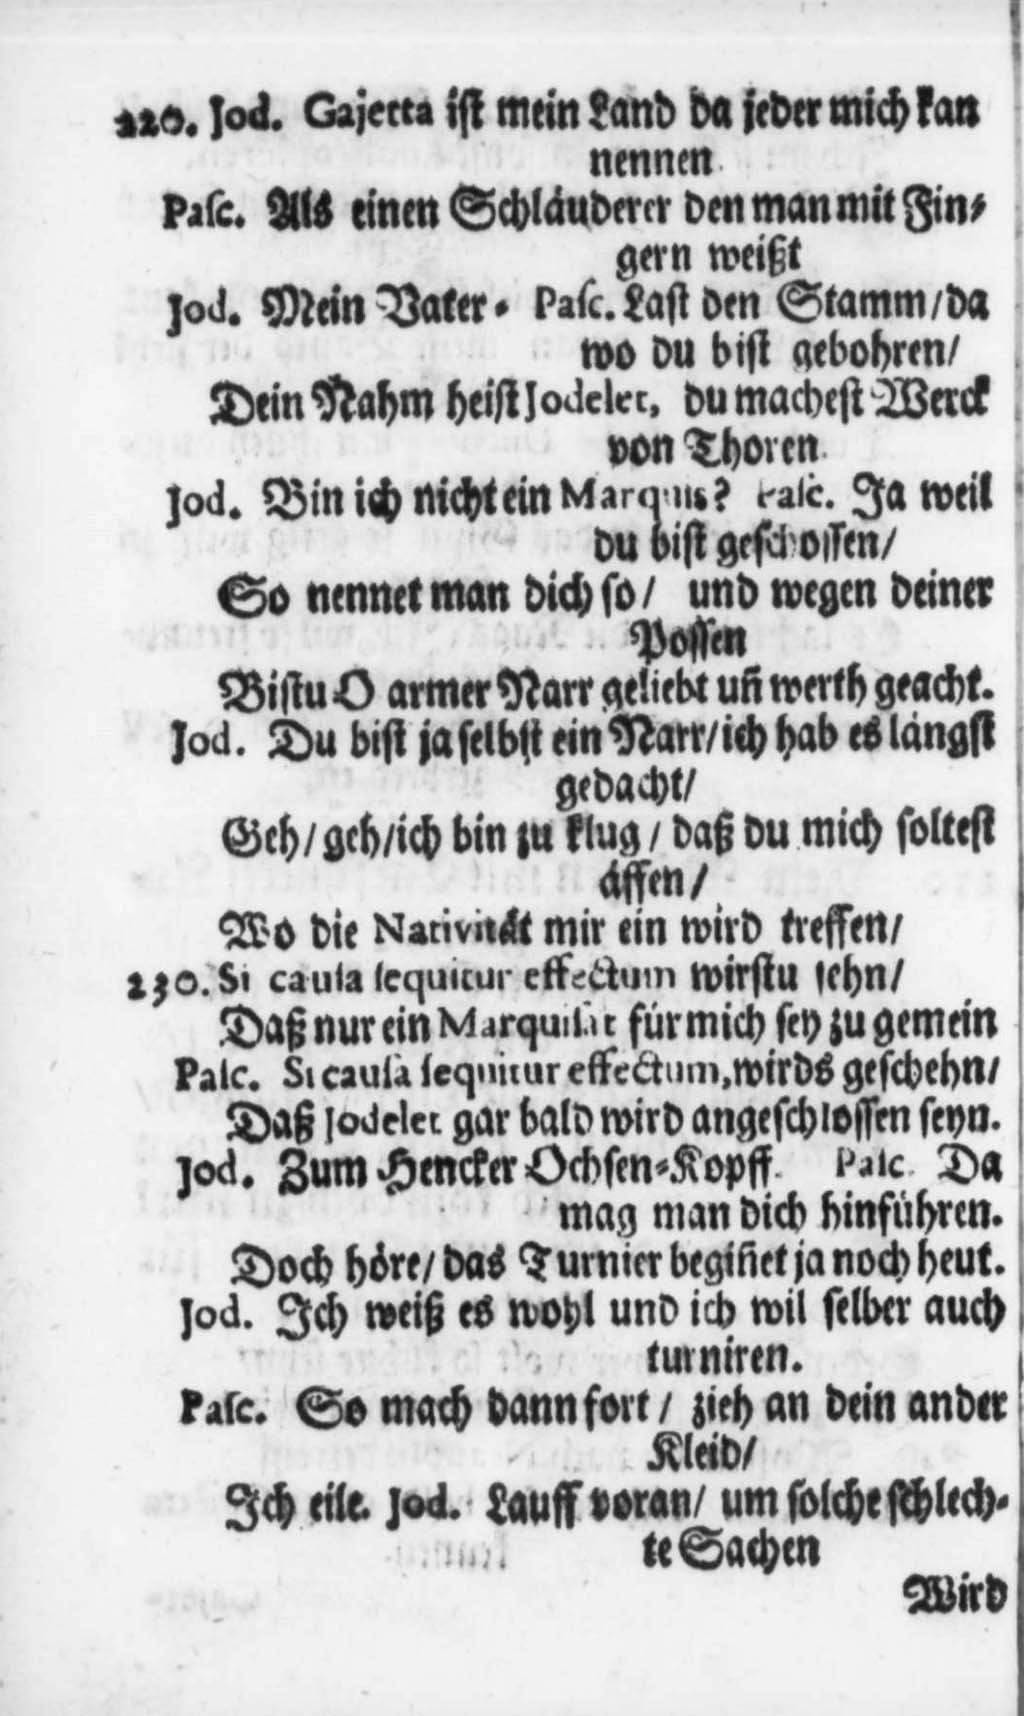 220. Jod. Gajetta iſt mein Land da jeder mich kan
nennen
Paſc. Als einen Schläuderer den man mit Fin⸗
gern weißt
Jod. Mein Vater⸗ Paſc. Laſt den Stamm/ da
wo du biſt gebohren/
Dein Nahm heiſt Jodelet, du macheſt Werck
von Thoren
Jod. Bin ich nicht ein Marquis? Paſc. Ja weil
du biſt geſchoſſen/
So nennet man dich ſo/ und wegen deiner
Poſſen
Biſtu O armer Narr geliebt uñ werth geacht.
Jod. Du biſt ja ſelbſt ein Narr/ ich hab es långſt
gedacht/
Geh/ geh/ ich bin zu klug/ daß du mich ſolteſt
åffen/
Wo die Nativitåt mir ein wird treffen/
230. Si cauſa ſequitur effectum wirſtu ſehn/
Daß nur ein Marquiſat für mich ſey zu gemein
Paſc. Si cauſa ſequitur effectum, wirds geſchehn/
Daß Jodelet gar bald wird angeſchloſſen ſeyn.
Jod. Zum Hencker Ochſen⸗Kopff. Paſc. Da
mag man dich hinführen.
Doch höre/ das Turnier begiñet ja noch heut.
Jod. Ich weiß es wohl und ich wil ſelber auch
turniren.
Paſc. So mach dann fort/ zieh an dein ander
Kleid/
Ich eile. Jod. Lauff voran/ um ſolche ſchlech⸗
te Sachen
Wird